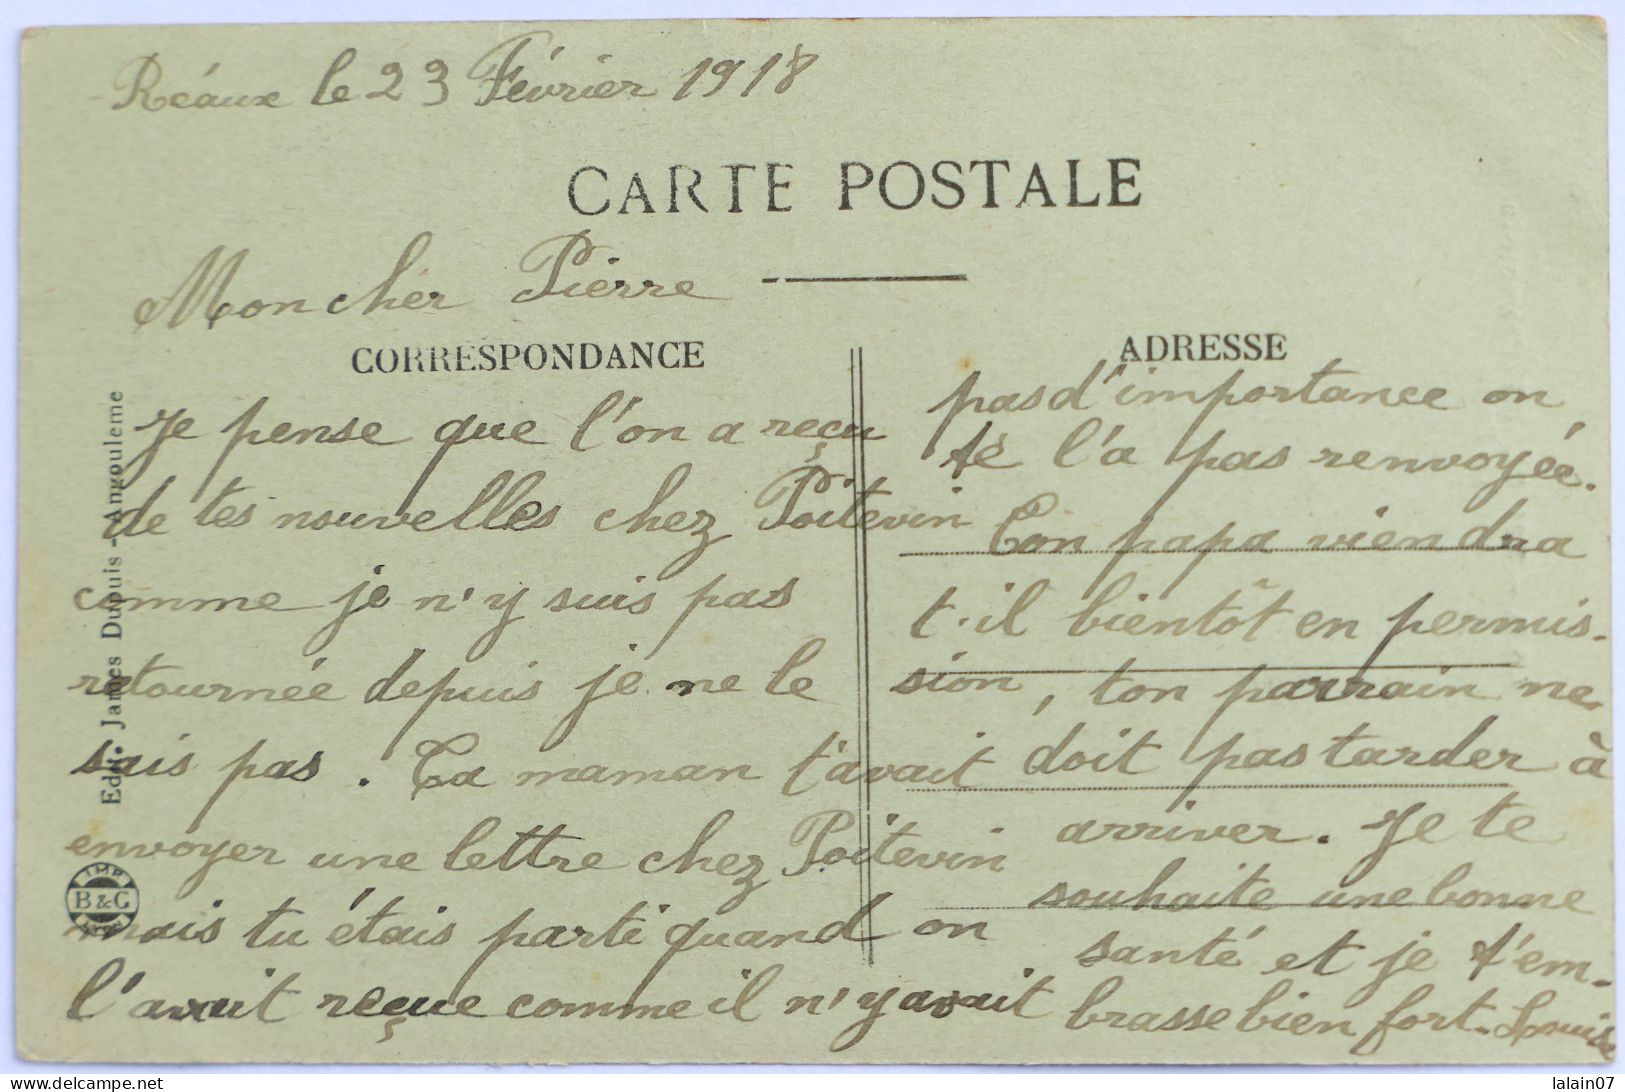 Réaux le 23 Février 1918
CARTE POSTALE
Mon cher Pierre
CORRESPONDANCE
Je pense que l'on a reçu
de tes nouvelles chez Poitevin
comme je n'y suis pas
retournée depuis je ne le
sais pas. Ta maman t'avait
envoyer une lettre chez Poitevin
mais tu étais parti quand on
l'avait reçue comme il n'y avait
ADRESSE
pas d'importance on
te l'a pas renvoyée.
Ton papa viendra
t-il bientôt en permis-
sion, ton parrain ne
doit pas tarder à
arriver. Je te
souhaite une bonne
santé et je t'em-
brasse bien fort. Louise
Edit. James Dupuis - Angoulême
IMP.
B & G
LYON
lalain07